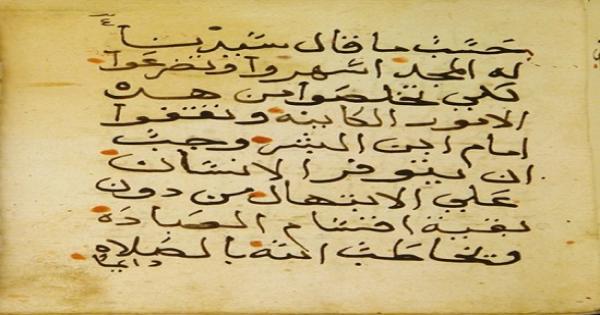 حسب ما قال سيدنا
له المجد اسهروا وتضرعوا
لكي تخلصوا من هذه
الامور الكاينه وتقفوا
امام ابن البشر وجب
ان يتوفر الانسان
علي الابتهال من دون
بقية اقسام العبادة
وتخاطب الله بالصلاه دايما